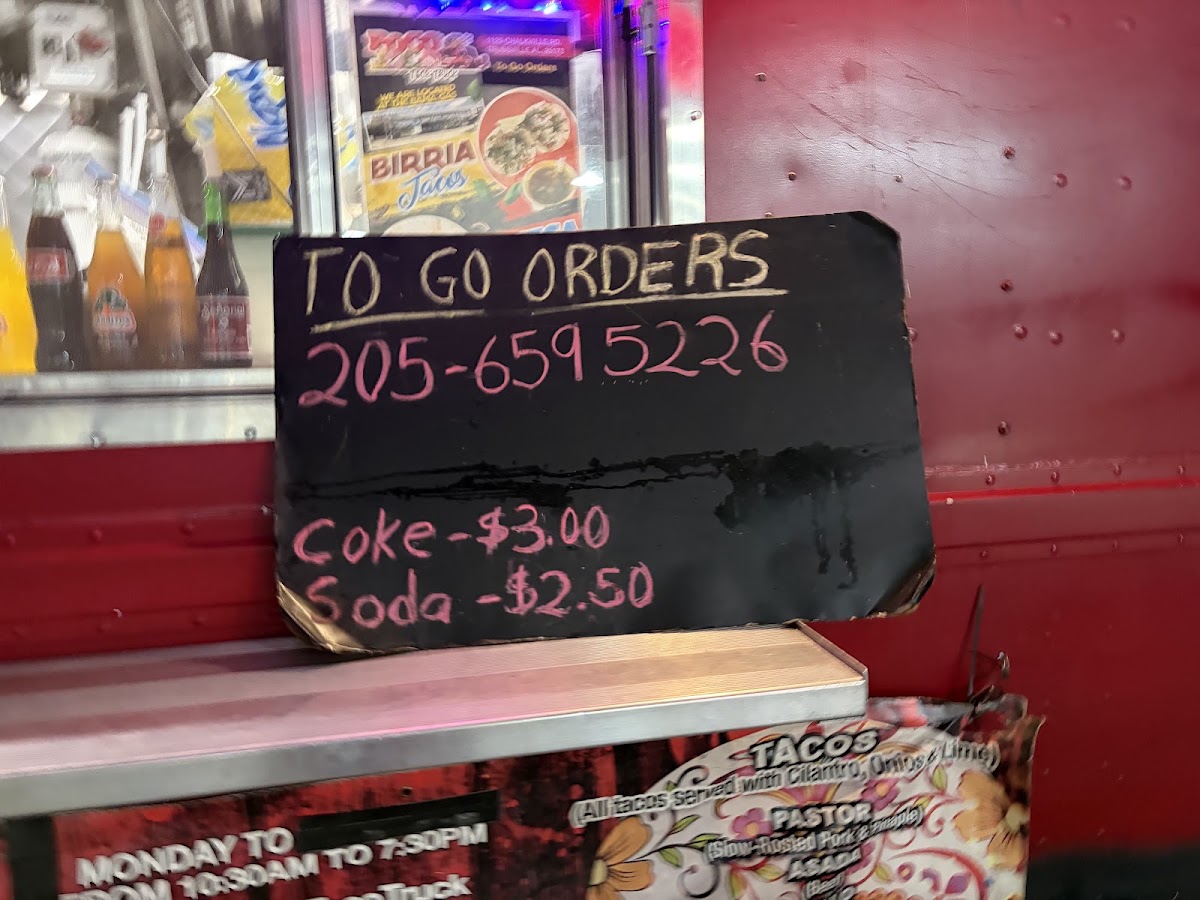 To Go Orders
WE ARE LOCATED
BIRRIA
Tacos
TO GO ORDERS
205-659 5226
Coke - $3.00
Soda - $2.50
TACOS
(All tacos served with Cilantro, Onios & Lime)
PASTOR
(Slow-Rosted Pork & Pinaple)
ASADA
(Beef)
MONDAY TO
FROM 10:30AM TO 7:30PM
Truck